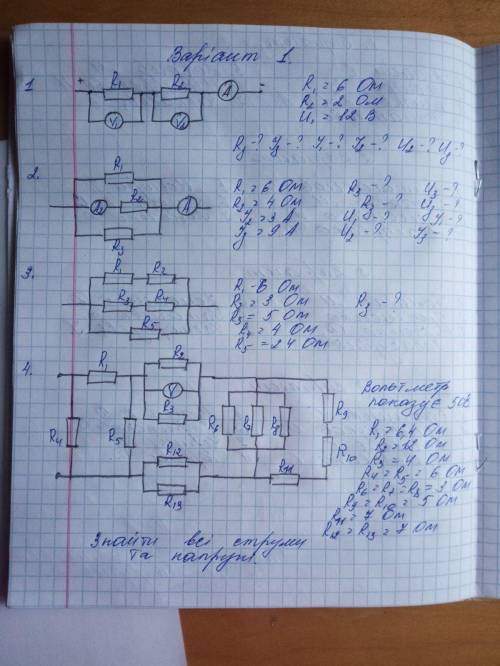 Варіант 1.
1
+ R₁ R₂ A -
V₁ V₂
R₁ = 6 Ом
R₂ = 2 Ом
U₁ = 12 В
R₃-? I₃-? I₁-? I₂-? U₂-? U₃-?
2.
R₁
A₂ R₂ A
R₃
R₁ = 6 Ом R₃ -? U₃ -?
R₂ = 4 Ом
I₂ = 3 А
I₃ = 9 А
3.
R₁ R₂
R₃ R₄
R₅
R₁ - 6 Ом
R₂ = 3 Ом R₃ -?
R₃ = 5 Ом
R₄ = 4 Ом
R₅ = 24 Ом
4.
R₁ R₂
V
R₃
R₄ R₅ R₆ R₇ R₈ R₉
R₁₀
R₁₂ R₁₁
R₁₃
Вольтметр
показує 50В
R₁ = 6,4 Ом
R₂ = 12 Ом
R₃ = 4 Ом
R₄ = R₅ = 6 Ом
R₆ = R₇ = R₈ = 3 Ом
R₉ = R₁₀ = 5 Ом
R₁₁ = 7 Ом
R₁₂ = R₁₃ = 7 Ом
Знайти всі струми
та напруги.